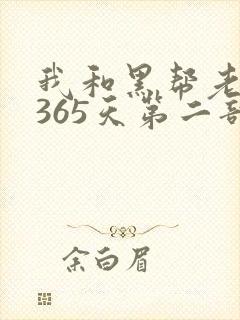 我和黑帮老
365天第二部
余白眉